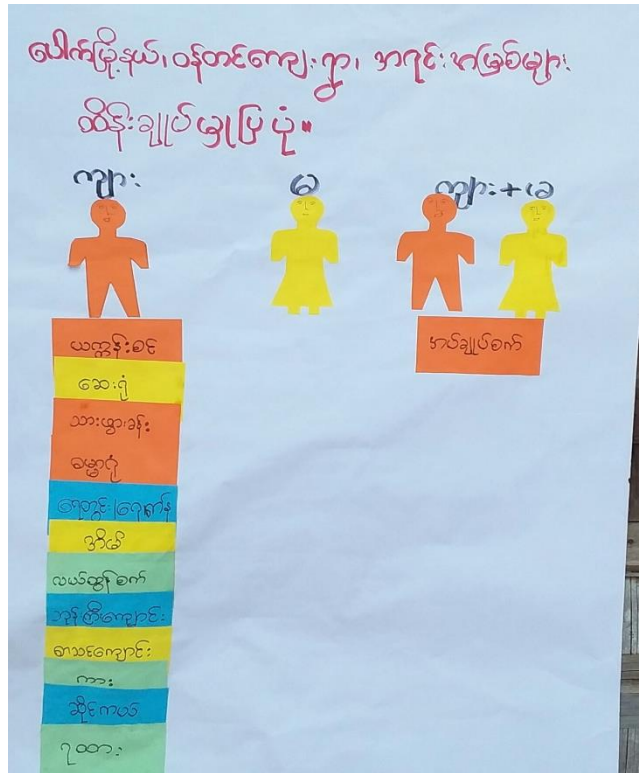 ပေါက်မြို့နယ်၊ ဝန်တင်ကျေးရွာ၊ အရင်းအမြစ်များ
ထိန်းချုပ်မှုပြပုံ။
ကျား
မ
ကျား+မ
ယက္ကန်းစင်
ဆေးရုံ
သားဖွားခန်း
ဓမ္မာရုံ
ရေတွင်း/ရေကန်
အိမ်
လယ်ထွန်စက်
ဘုန်းကြီးကျောင်း
စာသင်ကျောင်း
ကား
ဆိုင်ကယ်
ရထား
အပ်ချုပ်စက်